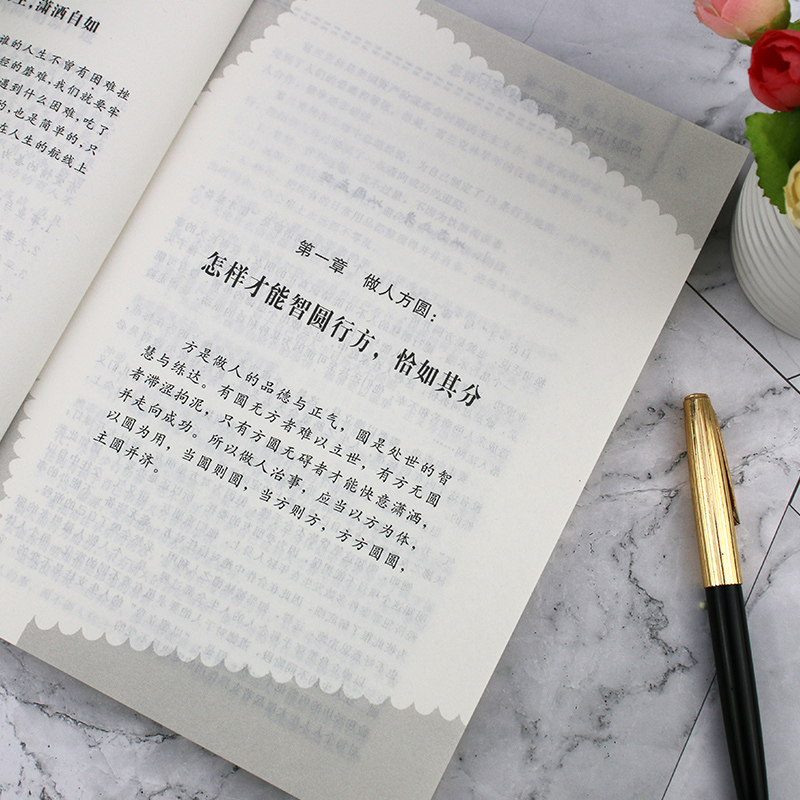 ，潇洒自如
谁的人生不曾有困难挫
经的磨难，我们就要牢
遇到什么困难，吃了
的，也是简单的，只
在人生的航线上
第一章 做人方圆：
怎样才能智圆行方，恰如其分
方是做人的品德与正气，圆是处世的智
慧与练达。有圆无方者难以立世，有方无圆
者滞涩拘泥，只有方圆无碍者才能快意潇洒，
并走向成功。所以做人治事，应当以方为体，
以圆为用，当圆则圆，当方则方，方方圆圆，
主圆并济。